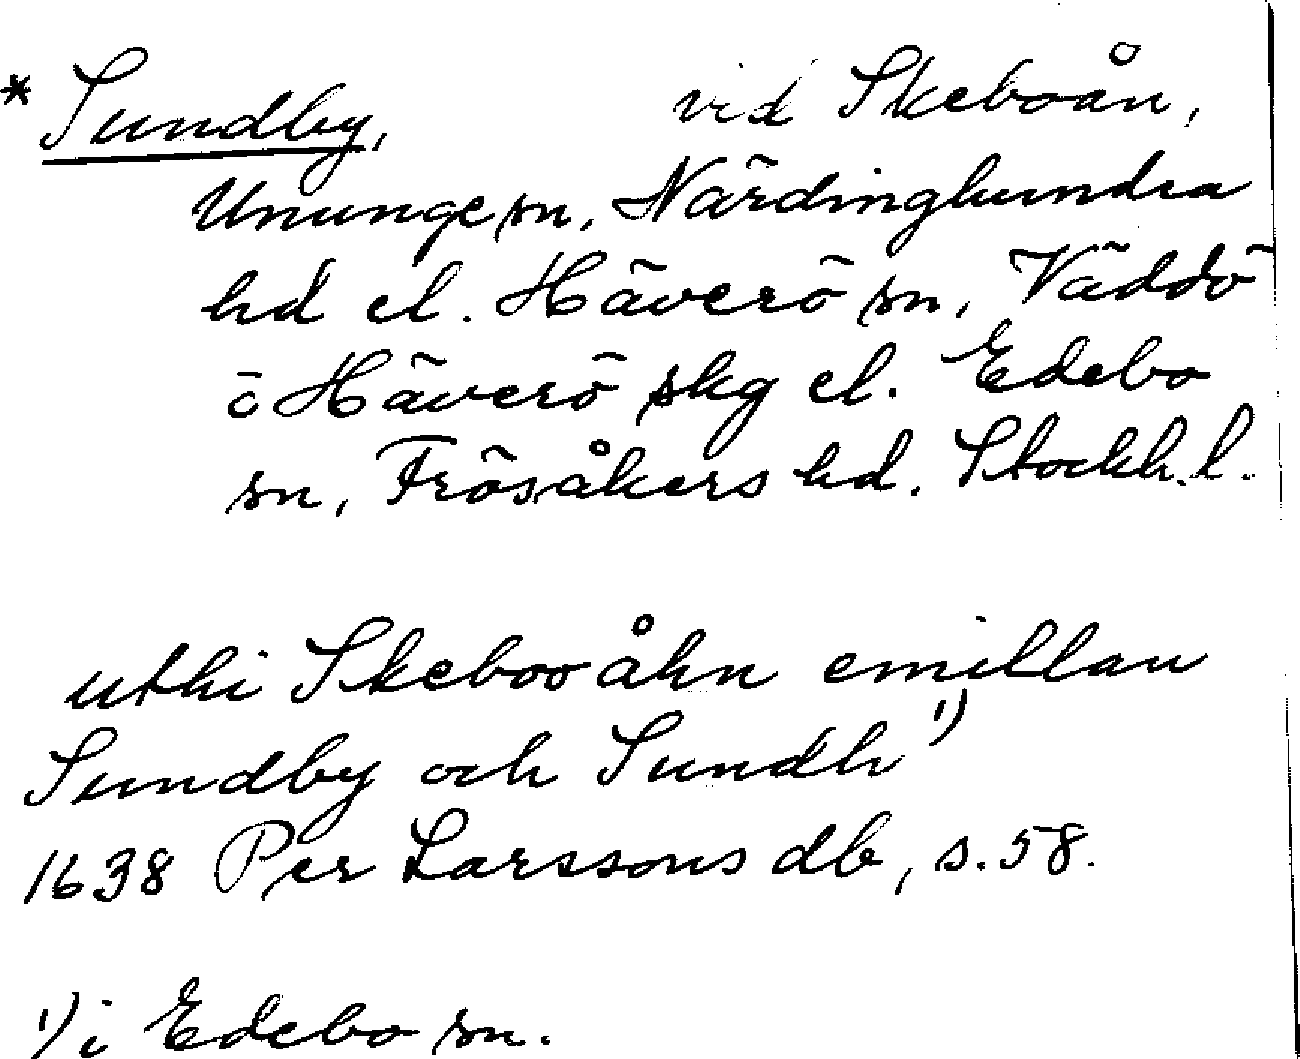 * Sundby, vid Skeboån,
Ununge sn, Närdinghundra
hd el. Häverö sn, Väddö
o Häverö skg el. Edebo
sn, Frösåkers hd. Stockh. l.
uthi Skeboo åhn emillan
Sundby och Sundh 1)
1638 Per Larssons db, s. 58.
1) i Edebo sn.